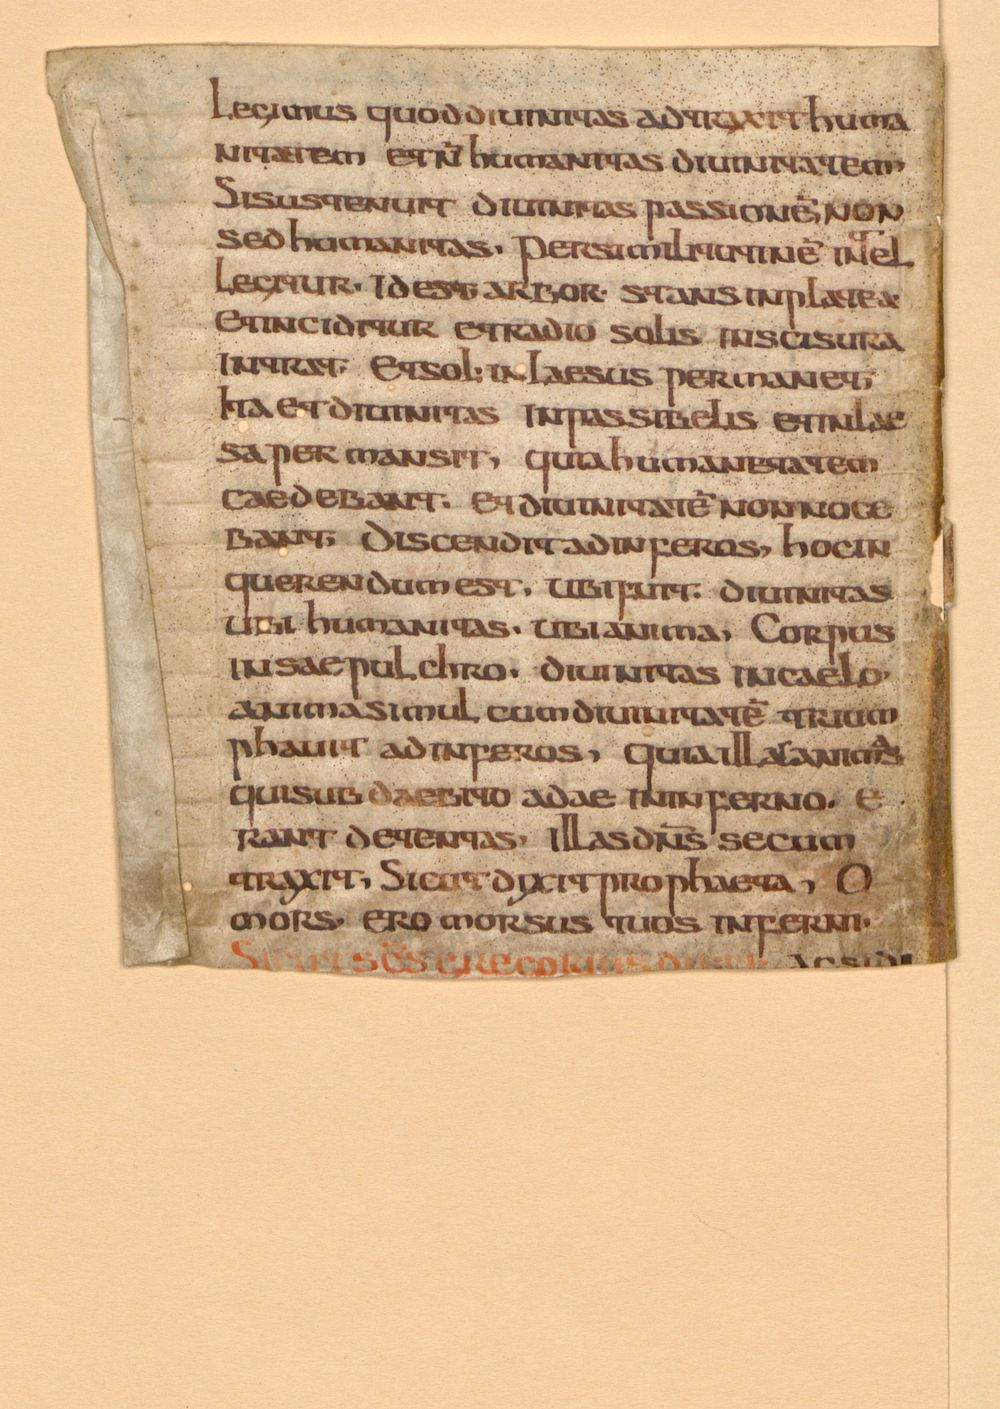 Legimus quod diuinitas adtraxit huma
nitatem et n̄ humanitas diuinitatem
Si sustenuit diuinitas passionē, non
sed humanitas. Per similitutinē intel
legitur. Id est arbor. stans in platea
et inciditur et radio solis in scisura
intrat. Et sol inlaesus permanet,
Ita et diuinitas inpassibelis et inlae
sa permansit, quia humanetatem
caedebant. et diuinitatē non noce
bant, Discendit ad inferos, hoc in
querendum est, ubi fuit. diuinitas
ubi humanitas. ubi anima, Corpus
in saepulchro. diuinitas in caelo.
anima simul cum diuinitatē trium
phauit ad inferos, quia illas animas
qui sub daebito adae in inferno. e
rant detentas, Illas dn̄s secum
traxit, Sicut dixit prophaeta, O
mors. ero morsus tuos inferni.
Sicut sc̄s gregorius dixit